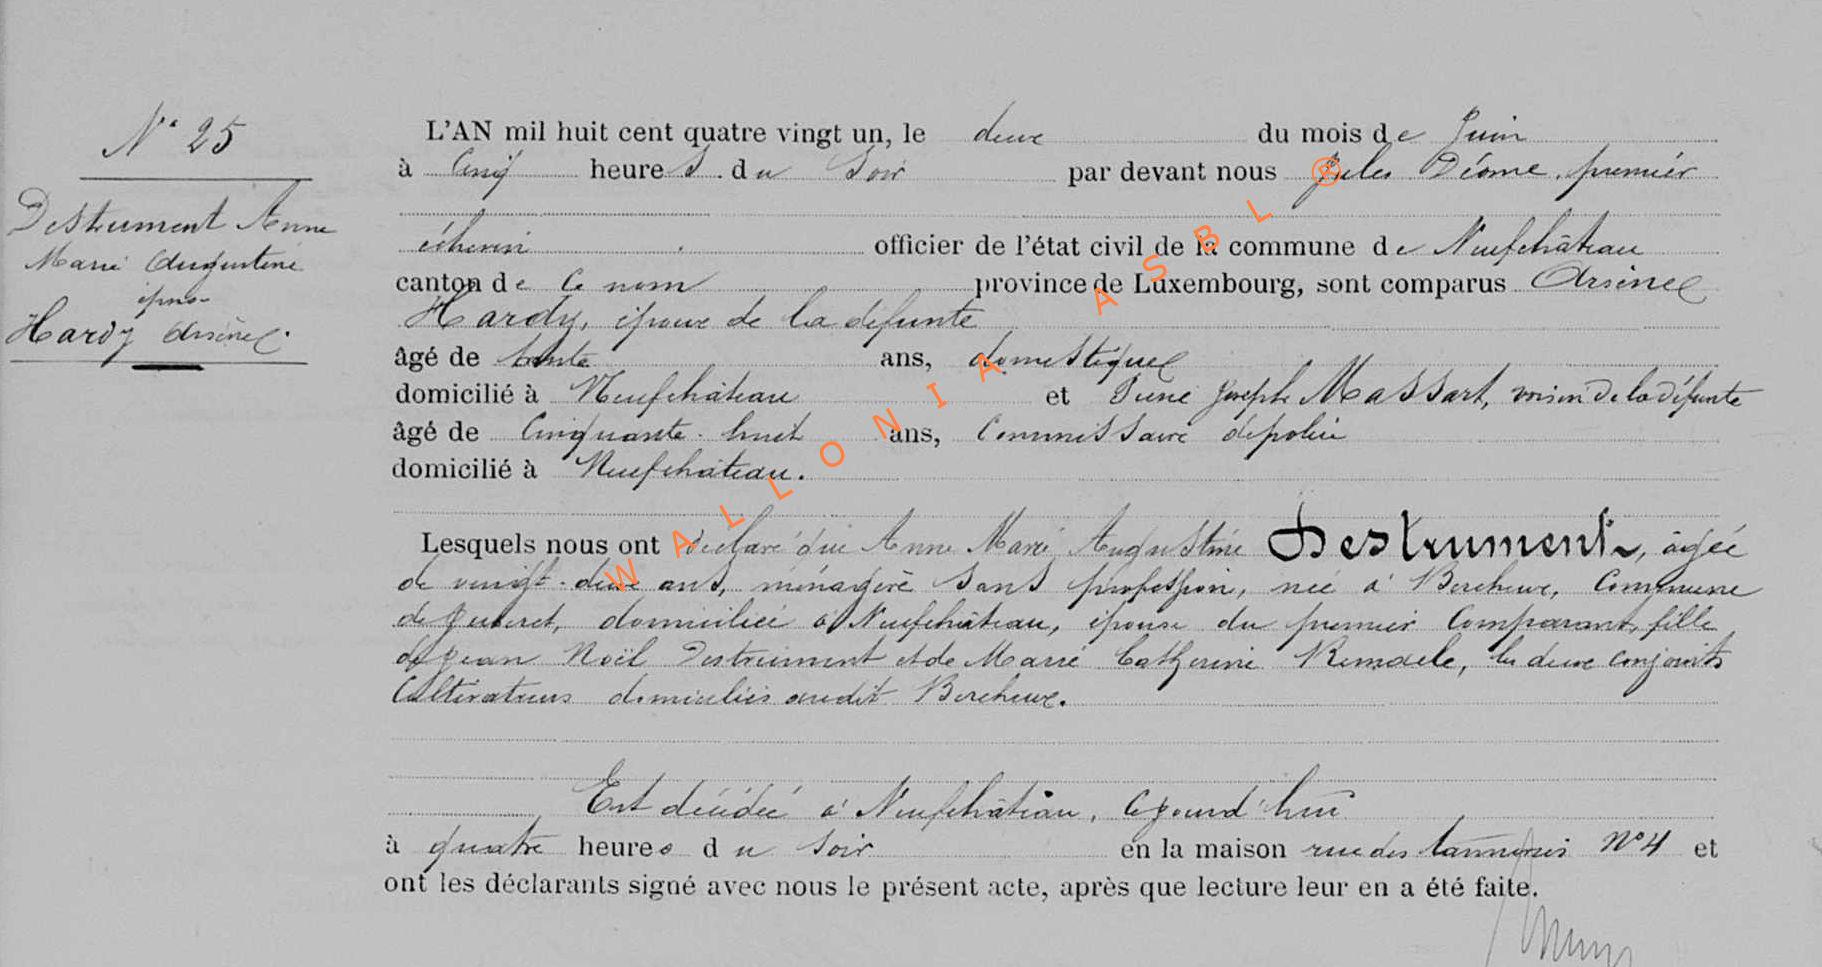 N° 25
Destrument Anne
Marie Augustine
épse
Hardy Arsène.
L'AN mil huit cent quatre vingt un, le deux du mois de Juin
à cinq heures du soir par devant nous Jules Déome, premier
échevin officier de l'état civil de la commune de Neufchâteau
canton de ce nom province de Luxembourg, sont comparus Arsène
Hardy, époux de la défunte
âgé de trente ans, domestique
domicilié à Neufchâteau et Joseph Massart, voisin de la défunte
âgé de cinquante-huit ans, Commissaire de police
domicilié à Neufchâteau.
Lesquels nous ont déclaré que Anne Marie Augustine Destrument, âgée
de vingt-deux ans, ménagère sans profession, née à Bercheux, Commune
de Juseret, domiciliée à Neufchâteau, épouse du premier Comparant, fille
de Jean Noël Destrument et de Marie Catherine Remacle, les deux conjoints
Cultivateurs domiciliés audit Bercheux.
Est décédée à Neufchâteau, cejourd'hui
à quatre heures du soir en la maison rue des tanneries N° 4 et
ont les déclarants signé avec nous le présent acte, après que lecture leur en a été faite.
WALLONIA ASBL ®